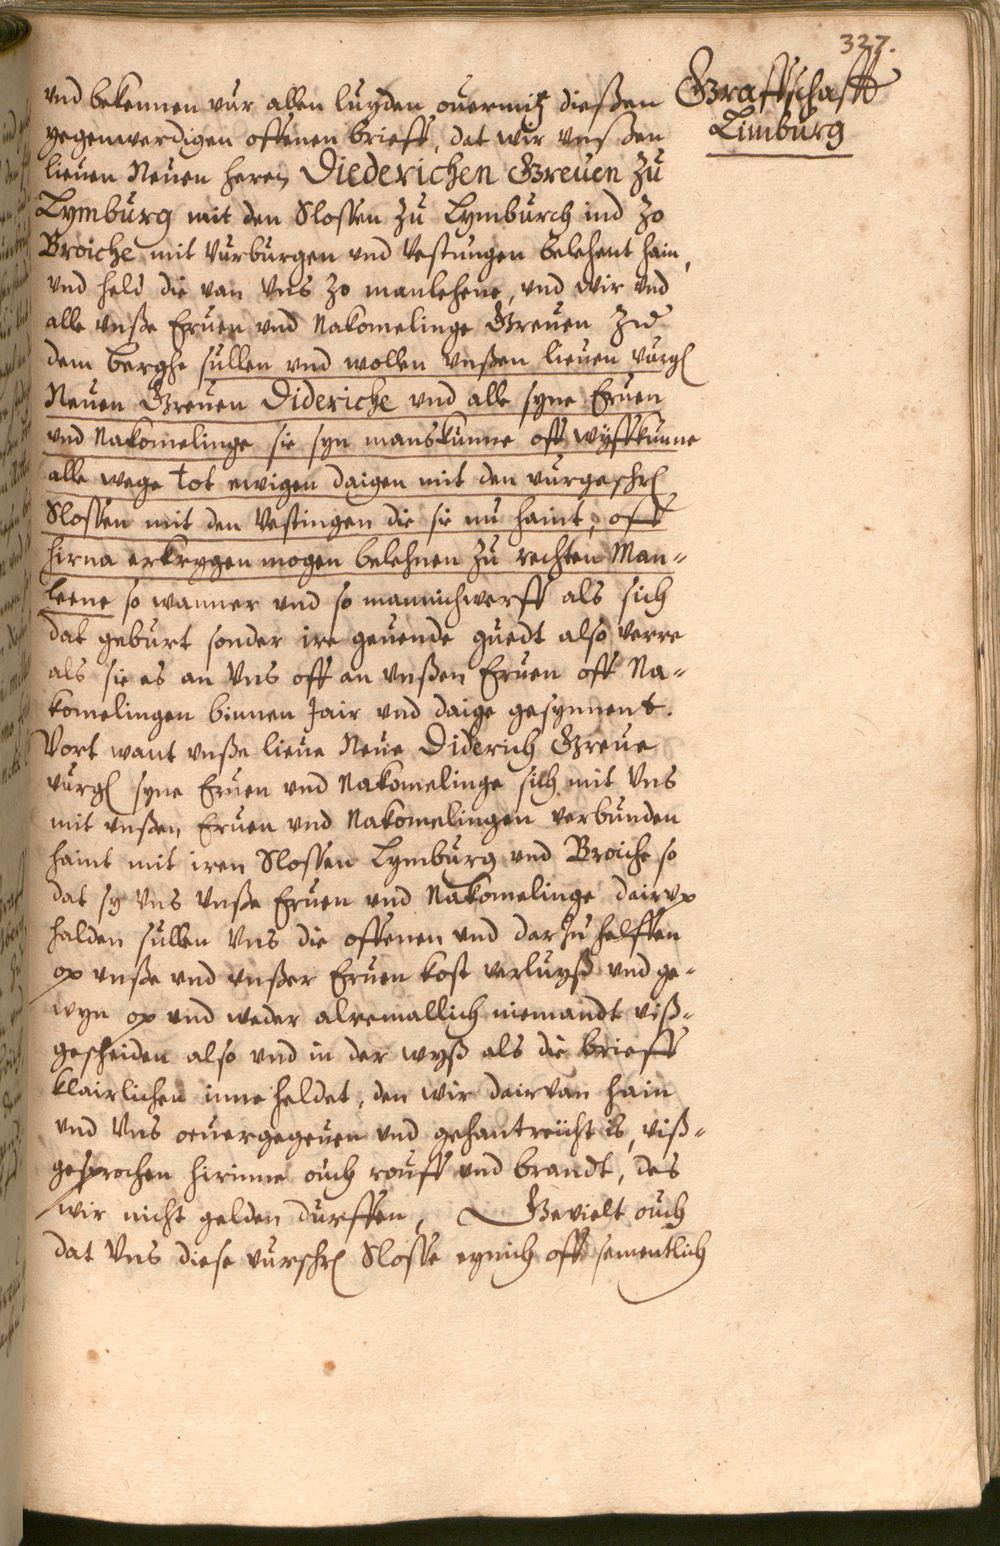 327.
Graffschafft
Limburg
vnd bekennen vur allen luyden ouermitz dießen
gegenwerdigen offenen brieff, dat wir vnßen
lieuen Neuen heren Diederichen Greuen zu
Lymburg mit den Slossen zu Lymburch ind zo
Broiche mit vurburgen vnd vestungen belehent hain,
vnd held die van vns zo manlehene, vnd wir vnd
alle vnße Eruen vnd Nakomelinge Greuen zu
dem berghe sullen vnd wollen vnßen lieuen vurgl
Neuen Greuen Dideriche vnd alle syne Eruen
vnd Nakomelinge sie syn manskunne off wyffkunne
alle wege tot ewigen daigen mit den vurgeschrl
Slossen mit den Vestingen die sie nu haint, off
hirna erkrygen mogen belehnen zu rechten Man-
leene so wanner vnd so mannichwerff als sich
dat geburt sonder ire geuende guedt also verre
als sie es an vns off an vnßen Eruen off Na-
komelingen binnen Jair vnd daige gesynnent.
Vort want vnße lieue Neue Diderich Greue
vurgl syne Eruen vnd Nakomelinge sich mit vns
mit vnßen Eruen vnd Nakomelingen verbunden
haint mit iren Slossen Lymburg vnd Broiche so
dat sy vns vnße Eruen vnd Nakomelinge dairup
halden sullen vns die offenen vnd dar zu helffen
op vnße vnd vnßer Eruen kost verluyß vnd ge-
wyn op vnd weder alremallich niemandt viß-
gescheiden also vnd in der wyß als die brieff
klairlichen inne heldet, den wir dairvan hain
vnd vns oeuergegeuen vnd gehantreicht is, viß-
gesprochen hirinne ouch rouff vnd brandt, des
wir nicht gelden durffen, Gevielt ouch
dat vns diese vurschrl Slosse eynich off sementlich